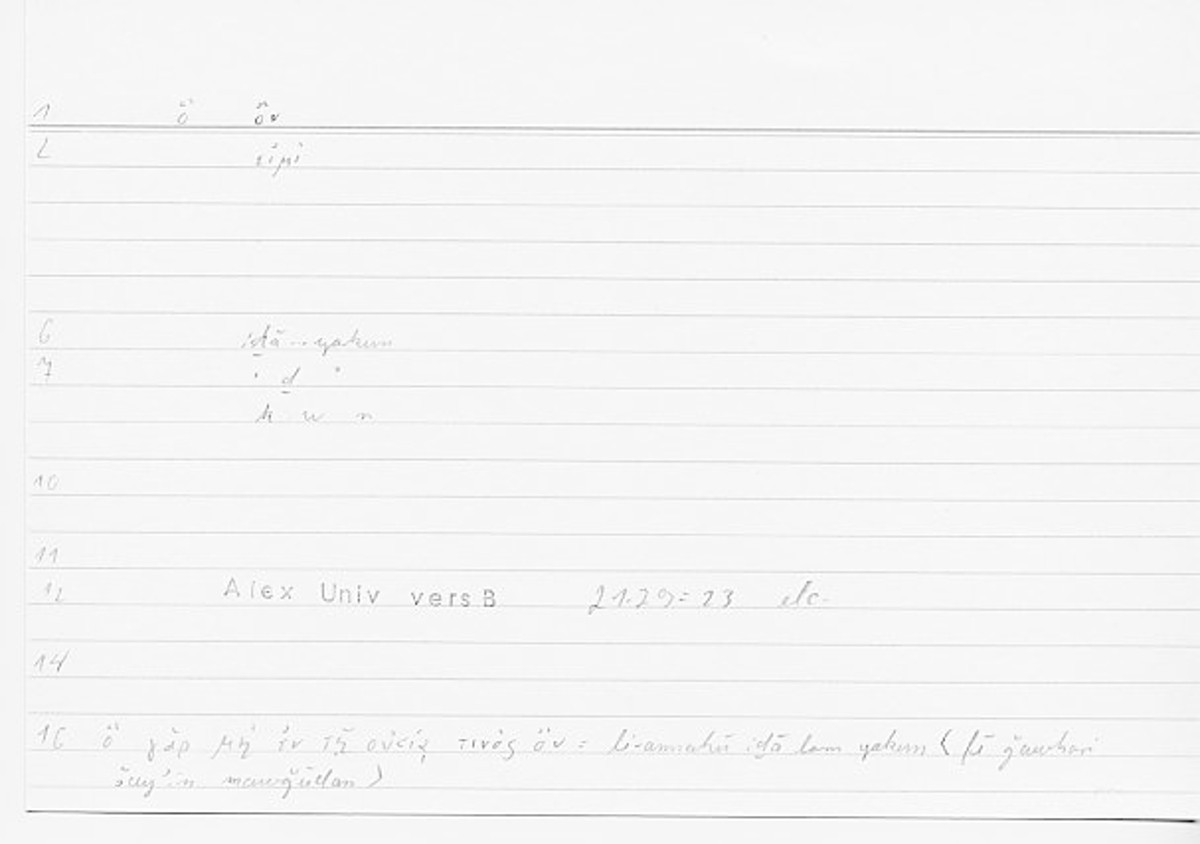 1 ὃ ὂν
2 εἰμί
6 iḏā -- yakun
7 ʾ ḏ ʾ
k w n
10
11
12 Alex Univ vers B 21.29 = 23 etc.
14
16 ὃ γὰρ μὴ ἐν τῇ οὐσίᾳ τινὸς ὂν = li-annahū iḏā lam yakun < fī ǧawhari
šayʾin mawǧūdan >